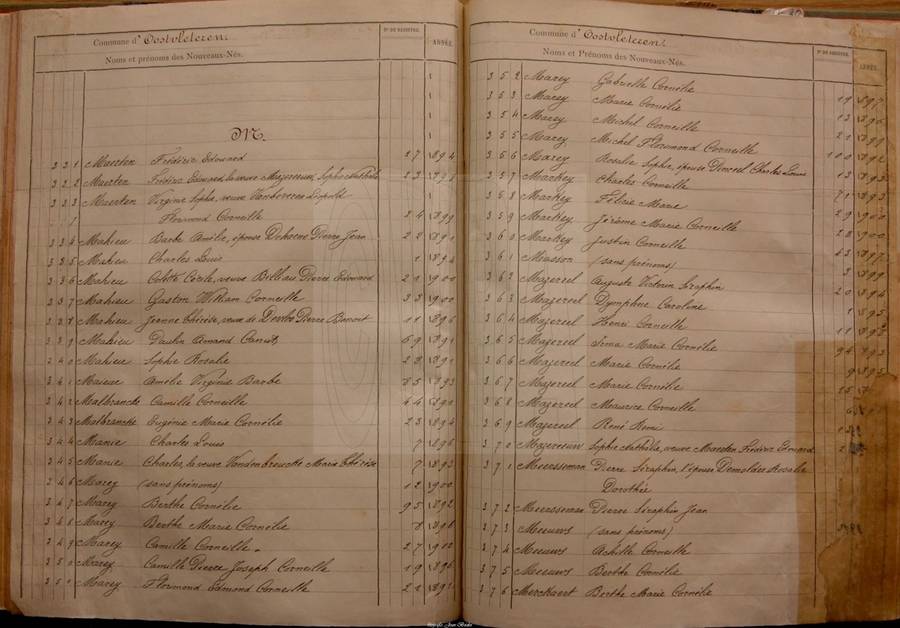 Commune d' Oostvleteren. N° DE REGISTRE. ANNÉE.
Noms et prénoms des Nouveaux-Nés.
M.
331 Maerten Frédéric Edouard 27 1894
332 Maerten Frédéric Edouard, le veuve Mazereeuw, Sophie Nathalie 23
333 Maerten Virginie Sophie, veuve Léopold
Florimond Corneille 24 1899
334 Mahieu Barbe Amélie, épouse Dehaene Pierre Jean 22 1891
335 Mahieu Charles Louis 1 1894
336 Mahieu Colette Cécile, veuve Billiau Pierre Edouard 20 1900
337 Mahieu Gaston William Corneille 33 1900
338 Mahieu Jeanne Thérèse, veuve de Pierre Benoit 11 1896
339 Mahieu Paulin Amand 69 1891
340 Mahieu Sophie Rosalie 28 1891
341 Maieur Amélie Virginie Barbe 85 1893
342 Malbrancke Camille Corneille 64 1890
343 Malbrancke Eugénie Marie Cornélie 23 1894
344 Manie Charles Louis 7 1896
345 Manie Charles, le veuve Vandenbroucke Marie Thérèse 7 1893
346 Marey (sans prénoms) 12 1900
347 Marey Berthe Cornélie 95 1892
348 Marey Berthe Marie Cornélie 8 1896
349 Marey Camille Corneille. 27 1900
350 Marey Camille Pierre Joseph Corneille 19 1896
351 Marey Florimond Edmond Corneille
Commune d' Oostvleteren. N° DE REGISTRE. ANNÉE.
Noms et Prénoms des Nouveaux-Nés.
352 Marey Gabrielle Cornélie 19 1897
353 Marey Marie Cornélie 13 1896
354 Marey Michel Corneille
355 Marey Michel Florimond Corneille 100 1892
356 Marey Rosalie Sophie, épouse Charles Louis 13 1893
357 Markey Charles Corneille 71 1893
358 Markey Marie 29 1900
359 Markey Jérôme Marie Corneille 28 1900
360 Markey Justin Corneille 63 1897
361 Masson (sans prénoms) 3 1899
362 Mazereel Auguste Victorin Séraphin 20 1894
363 Mazereel Dymphne Caroline 1 1895
364 Mazereel Henri Corneille 11
365 Mazereel Irma Marie Cornélie 94 1893
366 Mazereel Marie Cornélie 9 1895
367 Mazereel Marie Cornélie
368 Mazereel Maurice Corneille
369 Mazereel René Remi
370 Mazereeuw Sophie Nathalie, veuve Maerten Frédéric Edouard
371 Meerssman Pierre Séraphin, l'épouse Demolder Rosalie
Dorothée
372 Meerssman Pierre Séraphin Jean
373 Meeuws (sans prénoms)
374 Meeuws Achille Corneille
375 Meeuws Berthe Cornélie
376 Merckaert Berthe Marie Cornélie